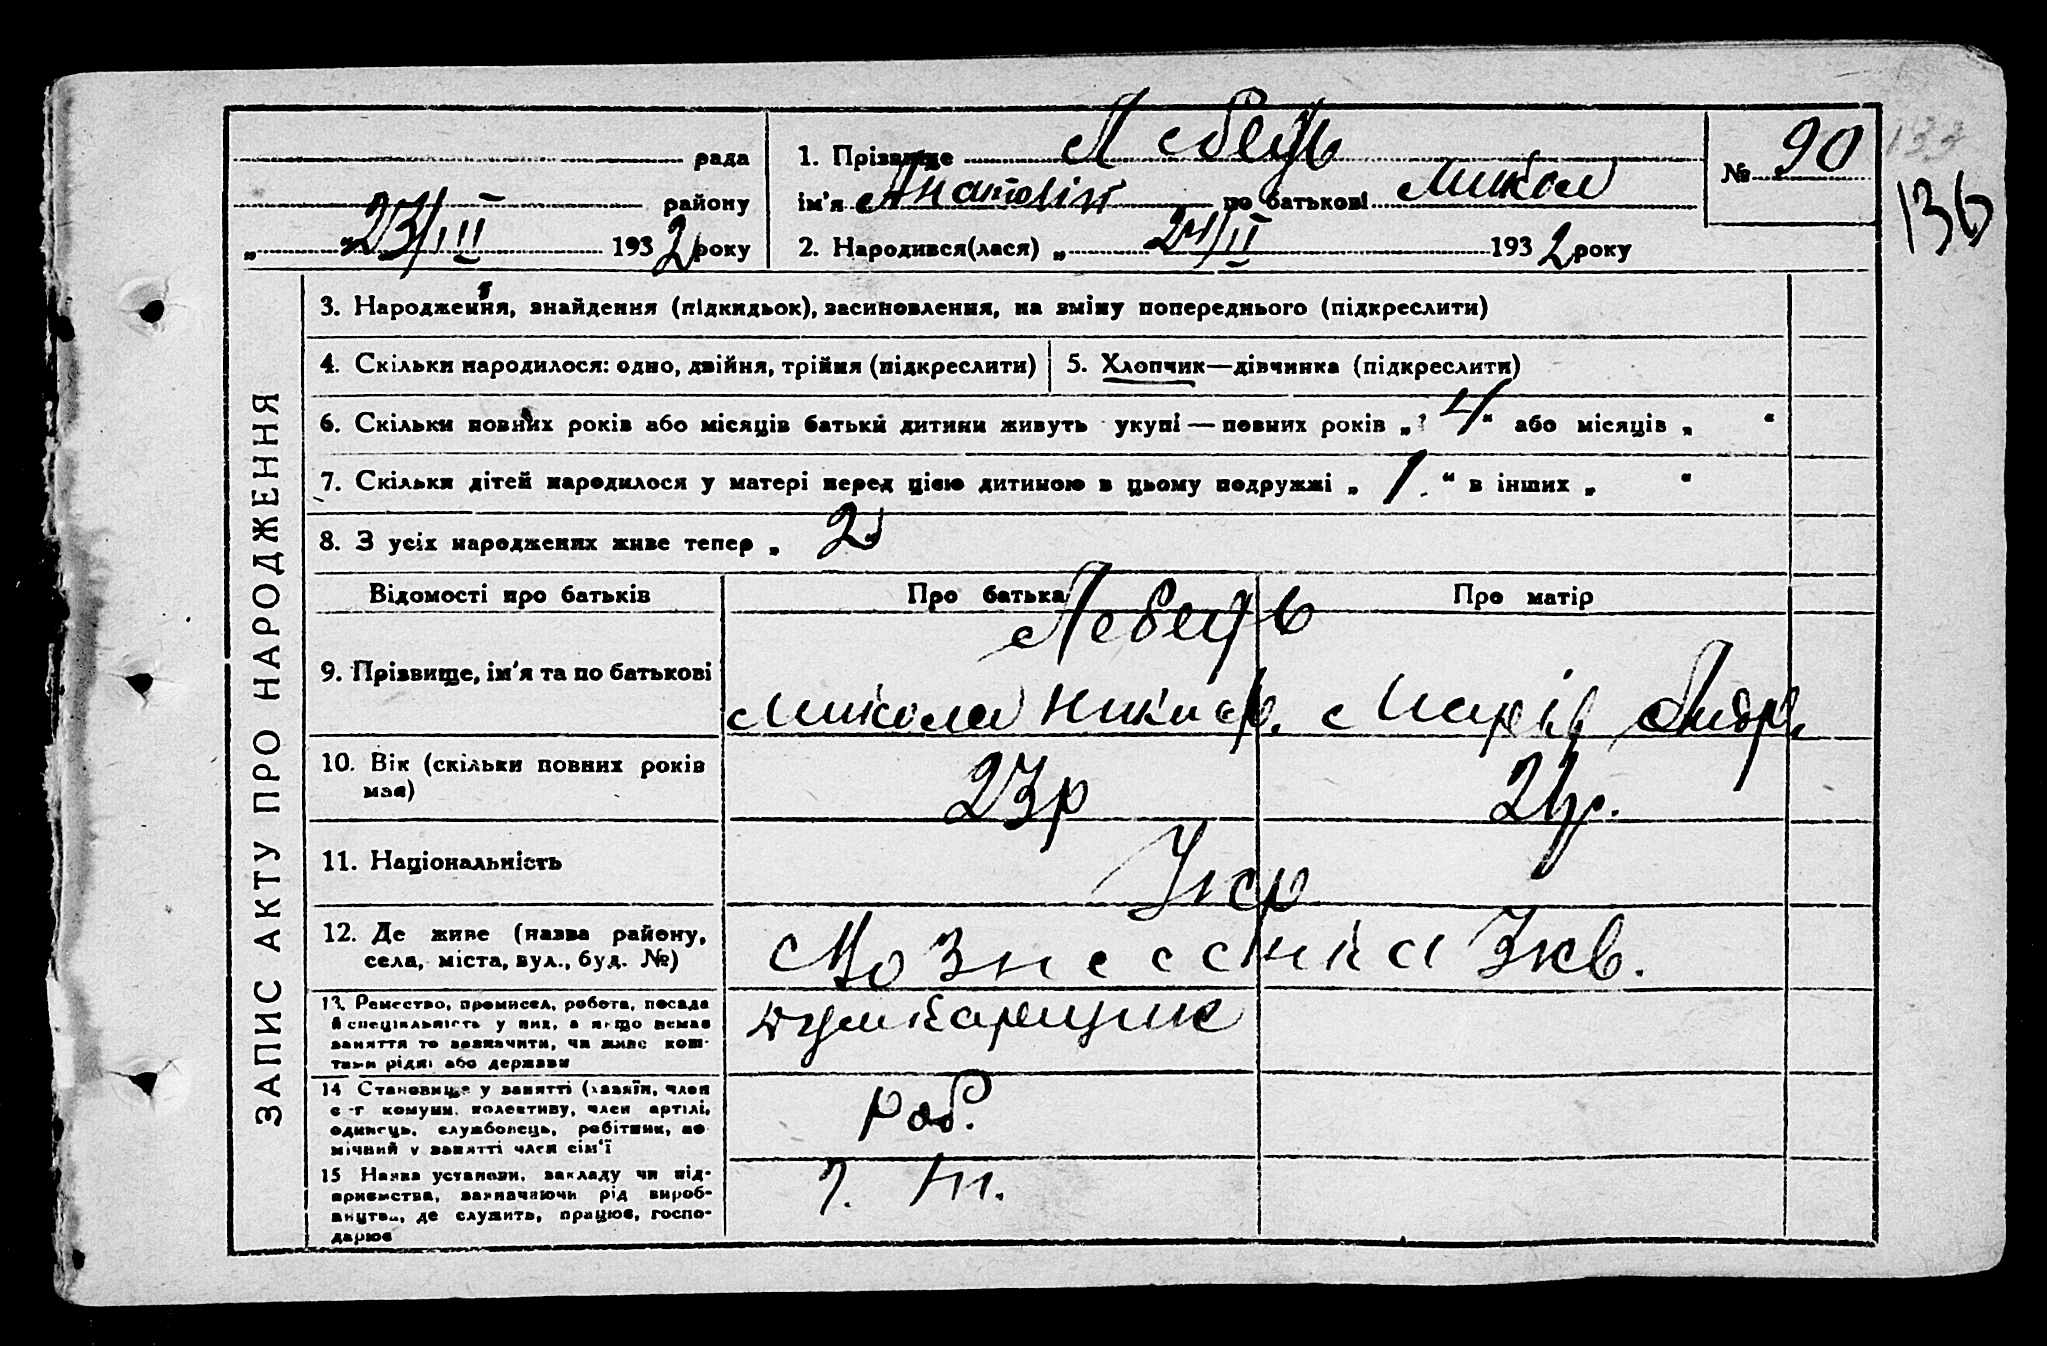 ЗАПИС АКТУ ПРО НАРОДЖЕННЯ
рада
району
„ 23/III 1932 року
1. Прізвище Лебедь
ім'я Анатолій по батькові Микол
2. Народився(лася) „ 24/II 1932 року
№ 90
133
136
3. Народження, знайдення (підкидьок), засиновлення, на зміну попереднього (підкреслити)
4. Скільки народилося: одно, двійня, трійня (підкреслити)
5. Хлопчик—дівчинка (підкреслити)
6. Скільки повних років або місяців батьки дитини живуть укупі — повних років „ 4 “ або місяців „ “
7. Скільки дітей народилося у матері перед цією дитиною в цьому подружжі „ 1. “ в інших „ “
8. З усіх народжених живе тепер „ 2
Відомості про батьків Про батька Про матір
9. Прізвище, ім'я та по батькові
Лебедь
Микола Никиф. Марія Андр.
10. Вік (скільки повних років має)
23р
11. Національність
Укр
12. Де живе (назва району,
села, міста, вул., буд. №)
Вознесенка
13. Ремество, промисел, робота, посада
й спеціяльність у них, а якщо немає
заняття то зазначити, чи живе кош-
тами рідні або держави
14 Становище у занятті (хазяїн, член
с-г комуни, колективу, член артілі,
одинець, службовець, робітник, по
мічний у занятті член сім'ї
роб.
15 Назва установи, закладу чи під-
приємства, зазначаючи рід вироб-
ництва, де служить, працює, госпо-
дарює